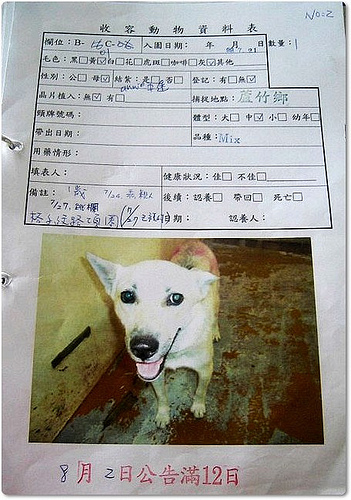 No:2
收容動物資料表
欄位:B- 入園日期: 年 月 日 數量:1
毛色:黑□黃☑白□花□虎斑□咖啡□灰☑其他
性別:公□母☑結紮:是□否□ 登記:有□無☑
晶片植入:無☑ 有□ 捕捉地點:蘆竹鄉
頸牌號碼: 體型:大□中☑小□幼年□
帶出日期: 品種:Mix
用藥情形:
填表人: 健康狀況:佳□ 不佳□
備註:1歲 後續:認養□ 帶回□ 死亡□
7/27.跳欄 日期: 認養人:
8月2日公告滿12日